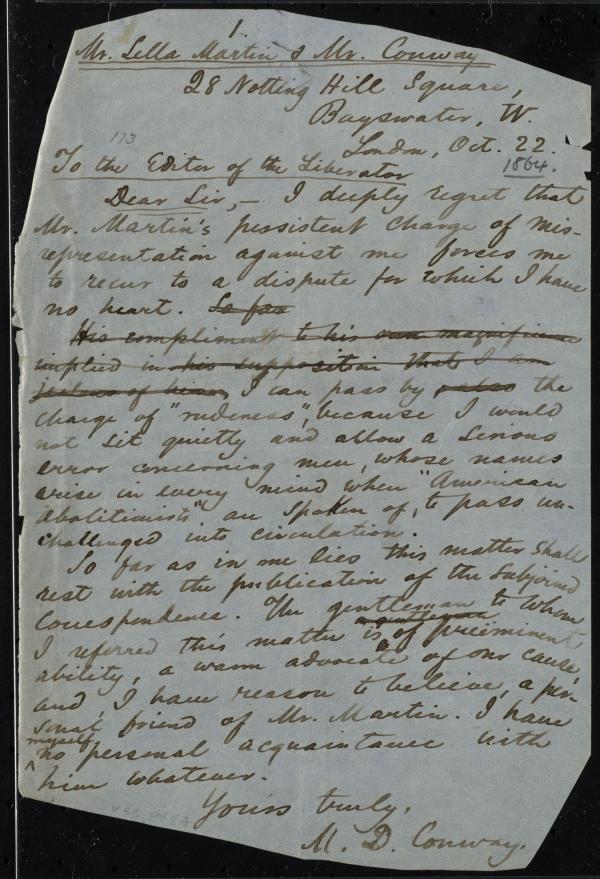 1.
Mr. Sella Martin & Mr. Conway
28 Notting Hill Square,
Bayswater, W.
173
London, Oct. 22.
1864.
To the Editor of the Liberator
Dear Sir,— I deeply regret that
Mr. Martin's persistent charge of mis-
representation against me forces me
to recur to a dispute for which I have
no heart. So far
His compliment to his own magnificence
implied in his supposition that I am
jealous of him, I can pass by the
charge of "rudeness", because I would
not sit quietly and allow a serious
error concerning men, whose names
arise in every mind when "American
Abolitionists" are spoken of, to pass un-
challenged into circulation.
So far as in me lies this matter shall
rest with the publication of the subjoined
correspondence. The gentleman to whom
a gentleman
I referred this matter is of preëminent
ability, a warm advocate of our cause,
and, I have reason to believe, a per-
sonal friend of Mr. Martin. I have
myself
no personal acquaintance with
him whatever.
Yours truly,
M. D. Conway.